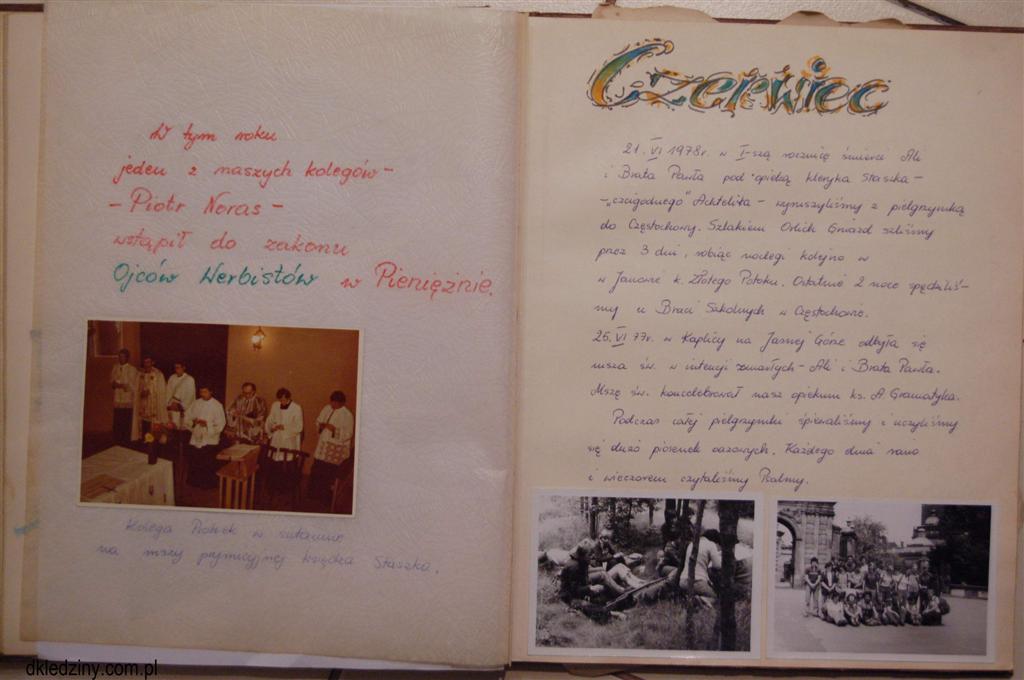 W tym roku
jeden z naszych kolegów -
- Piotr Noras -
wstąpił do zakonu
Ojców Werbistów w Pieniężnie.
Kolega Piotrek w sutannie
na mszy prymicyjnej księdza Staszka.
Czerwiec
21. VI 1978r. w I-szą rocznicę śmierci Ali
i Brata Pawła pod opieką kleryka Staszka -
- "czcigodnego" - wyruszyliśmy z pielgrzymką
do Częstochowy. Szlakiem Orlich Gniazd szliśmy
przez 3 dni, robiąc noclegi kolejno w
w Janowie k. Złotego Potoku. Ostatnie 2 noce spędziliś-
my u Braci Szkolnych w Częstochowie.
25. VI 77r. w Kaplicy na Jasnej Górze odbyła się
msza św. w intencji zmarłych - Ali i Brata Pawła.
Mszę św. koncelebrował nasz opiekun ks. A. Gramatyka.
Podczas całej pielgrzymki śpiewaliśmy i uczyliśmy
się dużo piosenek oazowych. Każdego dnia rano
i wieczorem czytaliśmy Psalmy.
dkledziny.com.pl